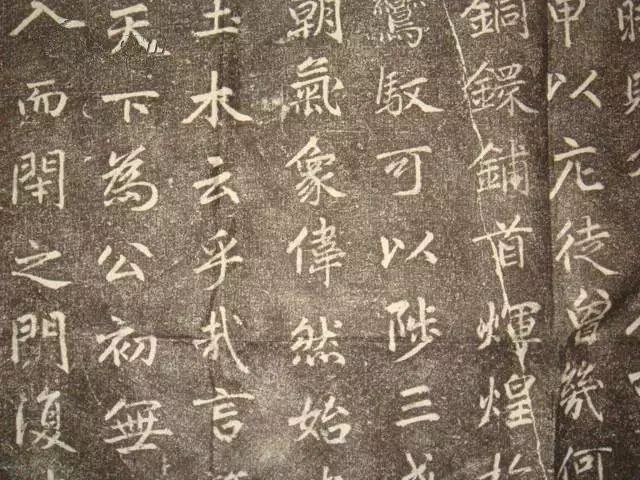 甲以庀徒曾幾何
銅鐶鋪首煇煌
鸞馭可以陟三
朝氣象偉然始
土木云乎哉言
天下為公初無
入而閈之門復